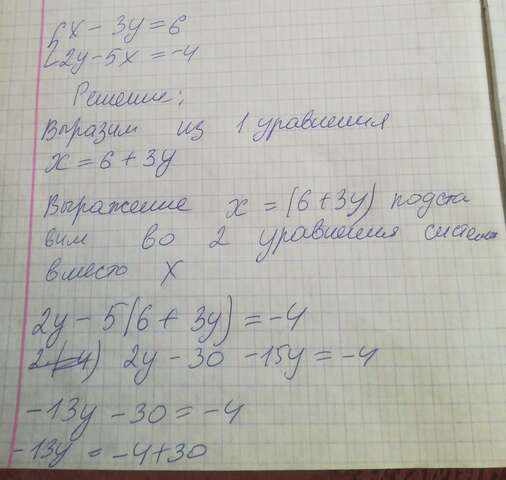 { x - 3y = 6
2y - 5x = -4
Решение:
Выразим из 1 уравнения
x = 6 + 3y
Выражение x = (6 + 3y) подста
вим во 2 уравнения системы
вместо x
2y - 5(6 + 3y) = -4
2y - 30 - 15y = -4
-13y - 30 = -4
-13y = -4 + 30